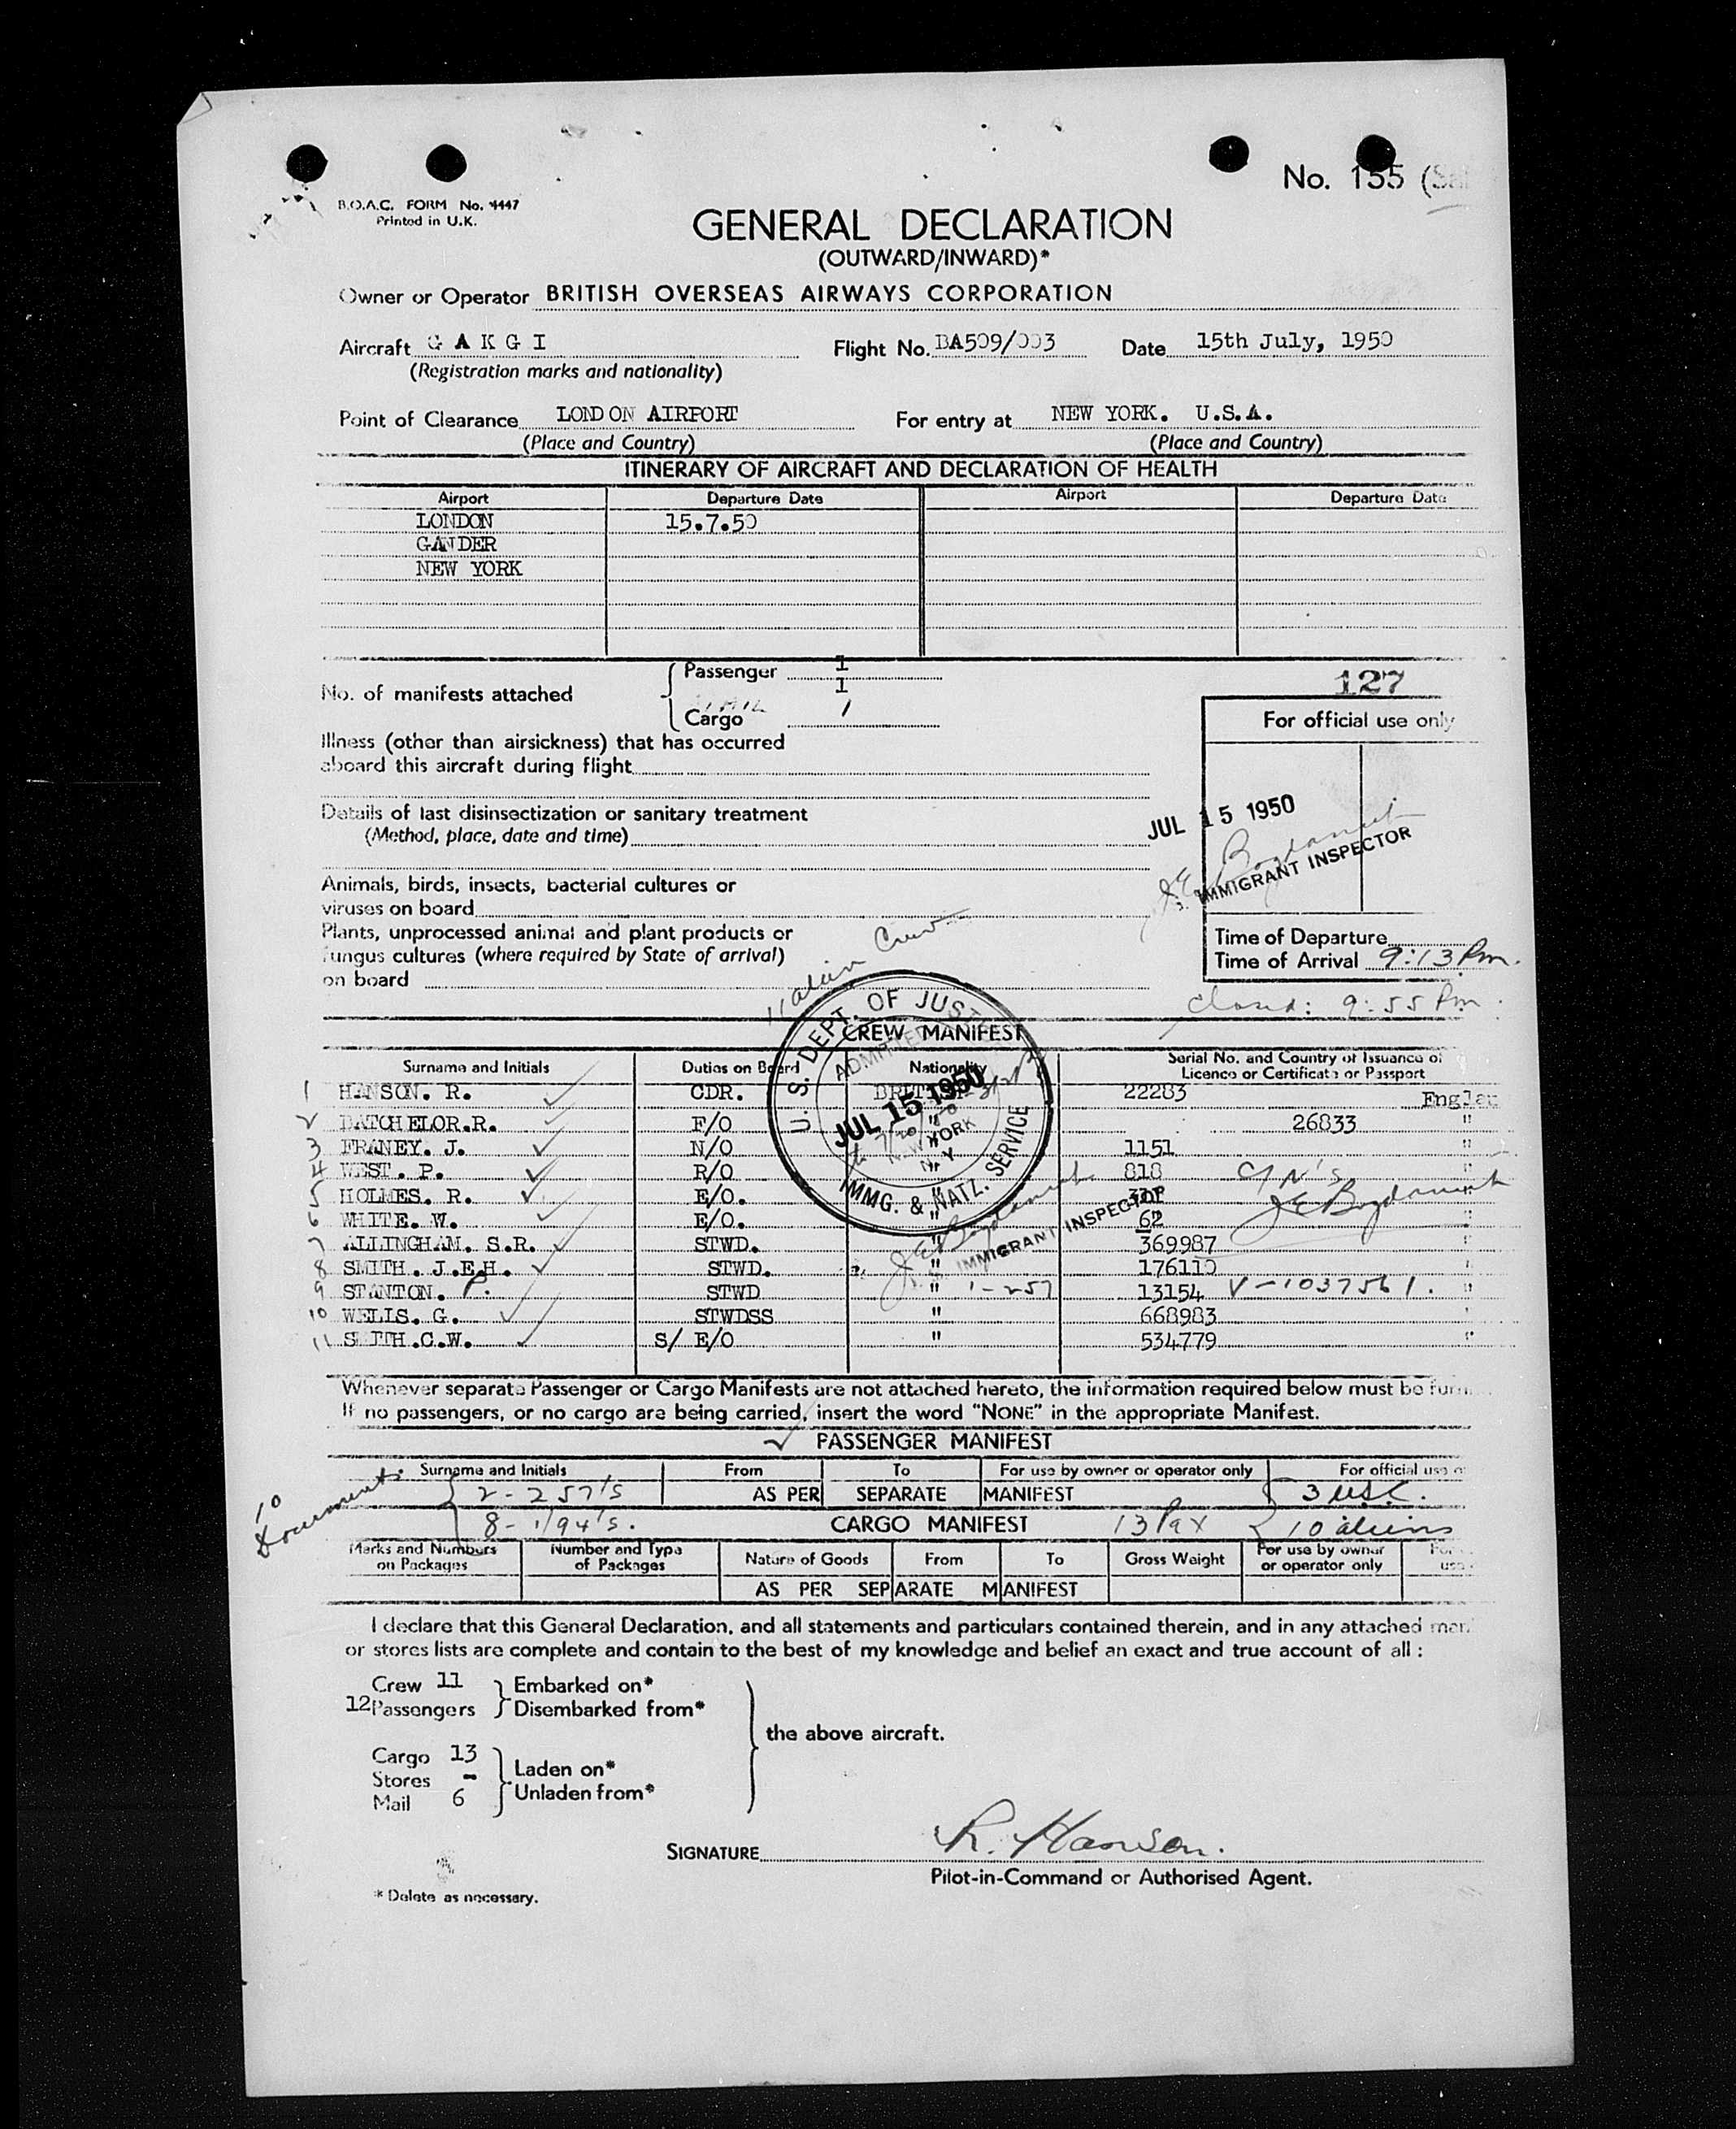 No. 155
B.O.A.C. FORM No. 4447
Printed in U.K.
GENERAL DECLARATION
(OUTWARD/INWARD)*
Owner or Operator BRITISH OVERSEAS AIRWAYS CORPORATION
Aircraft G A K G I Flight No. BA509/003 Date 15th July, 1950
(Registration marks and nationality)
Point of Clearance LONDON AIRPORT For entry at NEW YORK. U.S.A.
(Place and Country) (Place and Country)
ITINERARY OF AIRCRAFT AND DECLARATION OF HEALTH
Airport Departure Date Airport Departure Date
LONDON 15.7.50
GANDER
NEW YORK
Passenger 1
1
No. of manifests attached
Cargo 1
127
For official use only
Illness (other than airsickness) that has occurred
aboard this aircraft during flight
Details of last disinsectization or sanitary treatment
(Method, place, date and time)
JUL 15 1950
IMMIGRANT INSPECTOR
Animals, birds, insects, bacterial cultures or
viruses on board
Plants, unprocessed animal and plant products or
fungus cultures (where required by State of arrival)
on board
Time of Departure
Time of Arrival 9:13 Pm.
closed: 9:55 Pm.
11 alien Crew
U. S. DEPT. OF JUSTICE
ADMITTED
JUL 15 1950
NEW YORK
N.Y.
IMMG. & NATZ. SERVICE
CREW MANIFEST
Surname and Initials Duties on Board Nationality Serial No. and Country of Issuance of
Licence or Certificate or Passport
1 HANSON. R. CDR. BRITISH 22283 Englan
2 BATCHELOR.R. F/O " 26833 "
3 FRANEY. J. N/O " 1151 "
4 WEST. P. R/O " 818 "
5 HOLMES. R. E/O. " "
6 WHITE. W. E/O. " 62 "
7 ALLINGHAM. S.R. STWD. " 369987 "
8 SMITH. J.E.H. STWD. " 176110 "
9 STANTON. P. STWD " 1-257 13154 V-1037561. "
10 WELLS. G. STWDSS " 668983
11 SMITH.C.W. S/ E/O " 534779 "
IMMIGRANT INSPECTOR
Whenever separate Passenger or Cargo Manifests are not attached hereto, the information required below must be furn
If no passengers, or no cargo are being carried, insert the word "NONE" in the appropriate Manifest.
PASSENGER MANIFEST
Surname and Initials From To For use by owner or operator only For official use o
10 Documents 2-257's AS PER SEPARATE MANIFEST 3 USC.
8-1/94's. CARGO MANIFEST 13 Pax 10 aliens
Marks and Numbers on Packages Number and Type of Packages Nature of Goods From To Gross Weight For use by owner or operator only
AS PER SEPARATE MANIFEST
I declare that this General Declaration, and all statements and particulars contained therein, and in any attached man
or stores lists are complete and contain to the best of my knowledge and belief an exact and true account of all :
Crew 11 Embarked on*
12 Passengers Disembarked from*
the above aircraft.
Cargo 13
Stores - Laden on*
Mail 6 Unladen from*
SIGNATURE R. Hanson.
Pilot-in-Command or Authorised Agent.
* Delete as necessary.